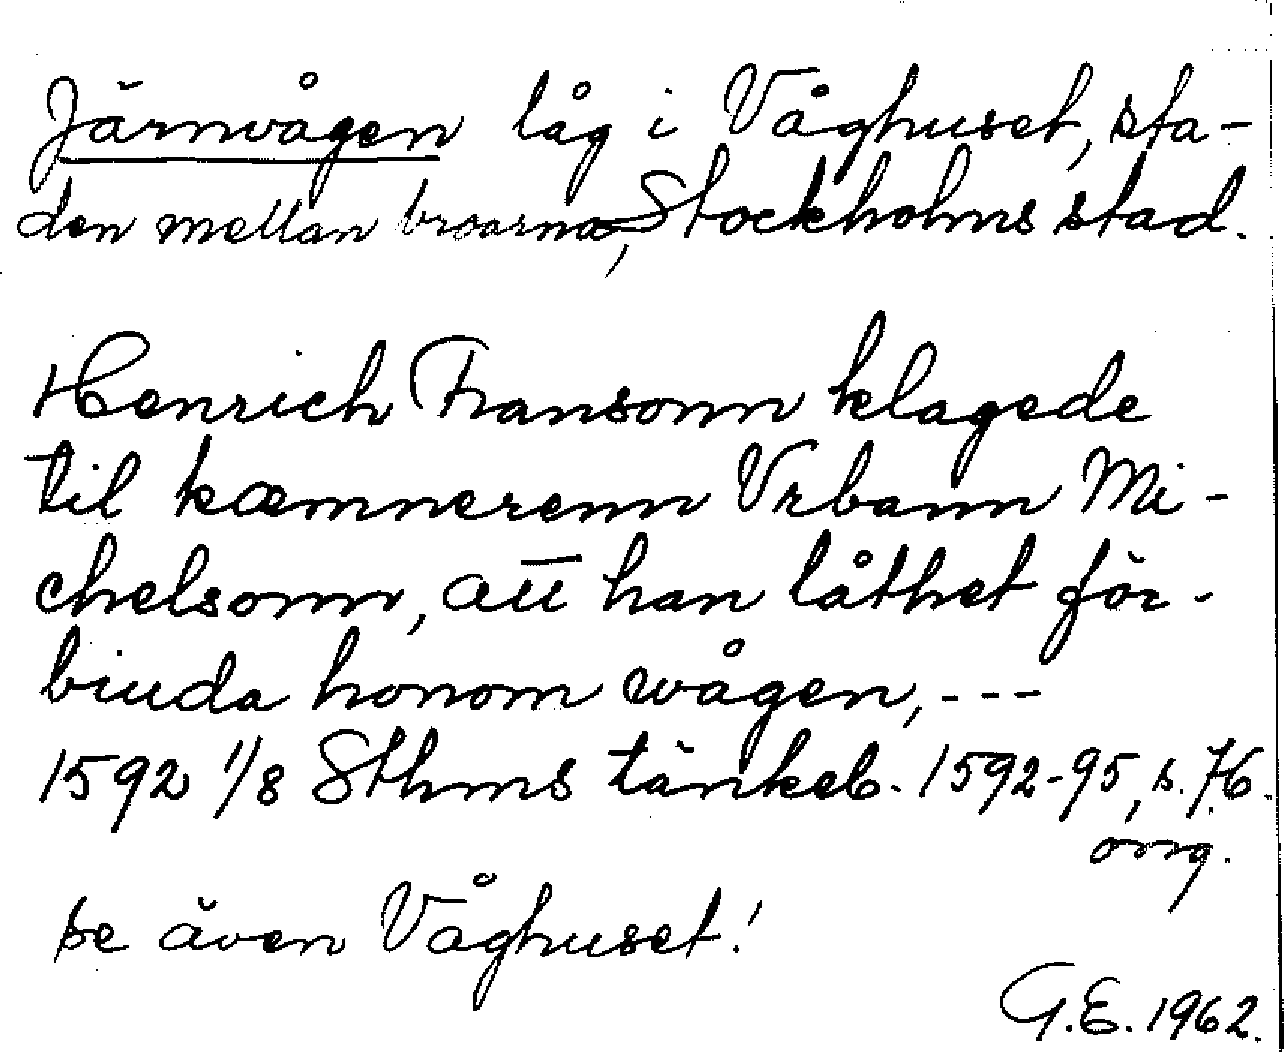 Järnvågen låg i Våghuset, sta-
den mellan broarna, Stockholms stad.
Henrich Fransonn klagede
til kæmnerenn Vrbann Mi-
chelsonn, att han låthet för-
biuda honom wågen, ---
1592 1/8 Sthms tänkeb. 1592-95, s. 76.
orig.
se även Våghuset!
G.E. 1962.